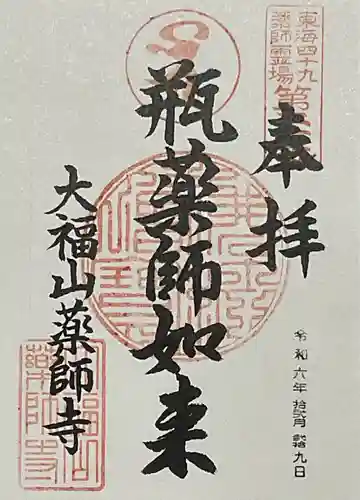 東海四十九
薬師霊場第
奉拝
瓶薬師如来
大福山薬師寺
令和六年拾弐月
九日